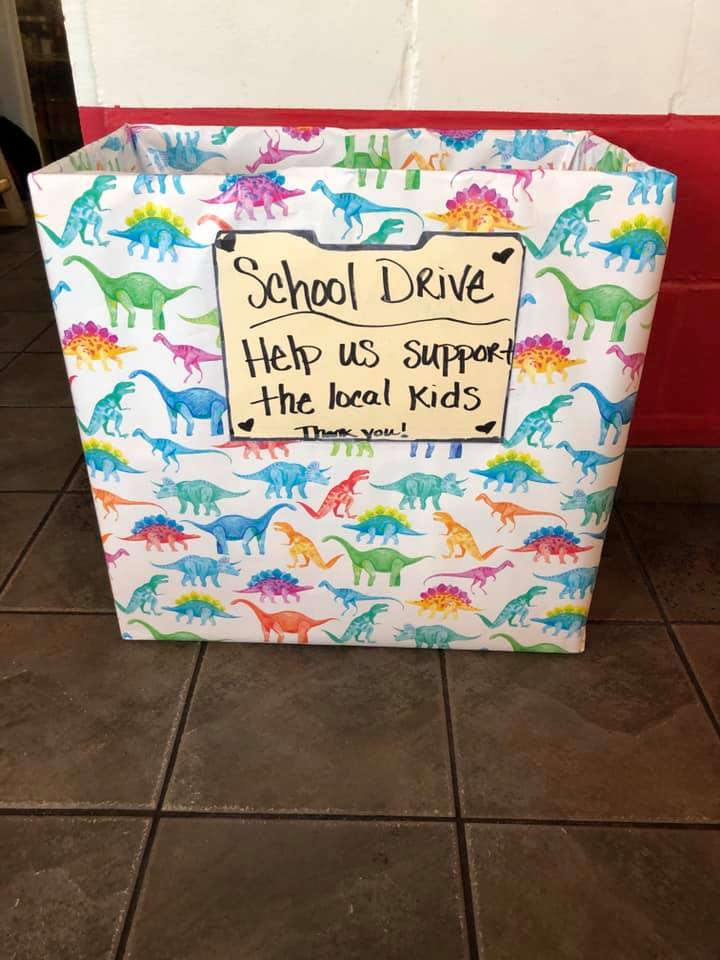 School DRive
Help us support
the local Kids
Thank you!